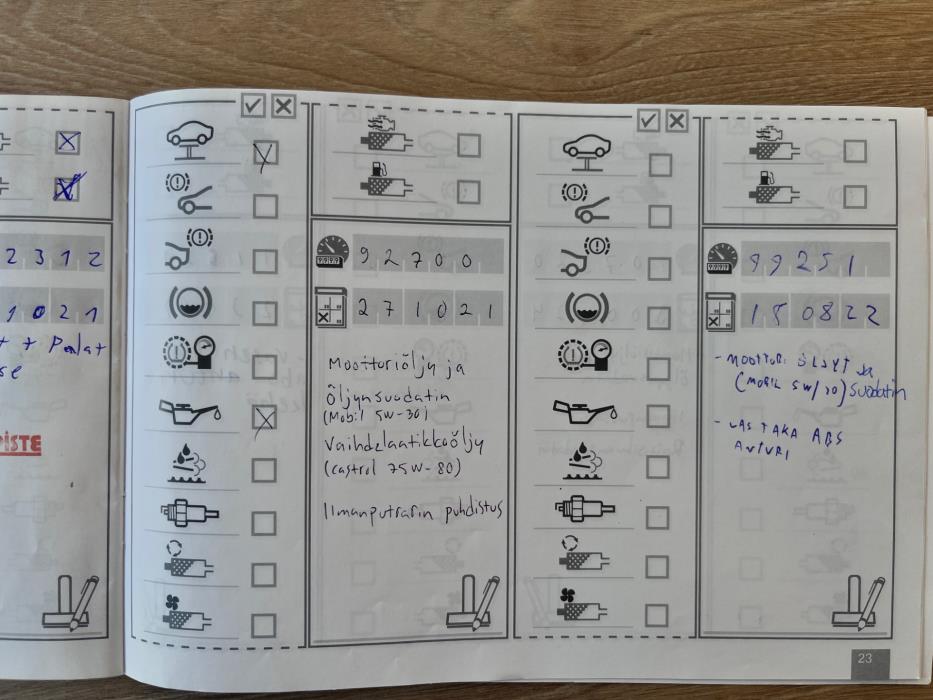 2 3 1 2
1 0 2 1
+ + Palat
se
PISTE
9 2 7 0 0
2 7 1 0 2 1
Moottoriöljy ja
Öljynsuodatin
(Mobil 5W-30)
Vaihdelaatikkoöljy
(castrol 75W-80)
Ilmanputsarin puhdistus
9 9 2 5 1
1 8 0 8 2 2
- MOOTTORI ÖLJYT JA
(MOBIL 5W/30) Suodatin
- VAS TAKA ABS
ANTURI
23